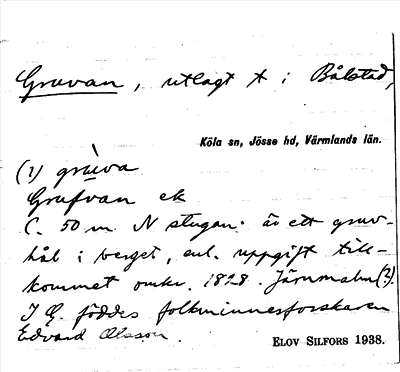 Gruvan, utlagt t i Bålstad,
Köla sn, Jösse hd, Värmlands län.
(1) grùva
Grufvan ek
C. 50 m N stugan. är ett gruv-
hål i berget, enl. uppgift till-
kommet omkr. 1828. Järnmalm (?).
I G. föddes folkminnesforskaren
Edvard Olsson.
ELOV SILFORS 1938.